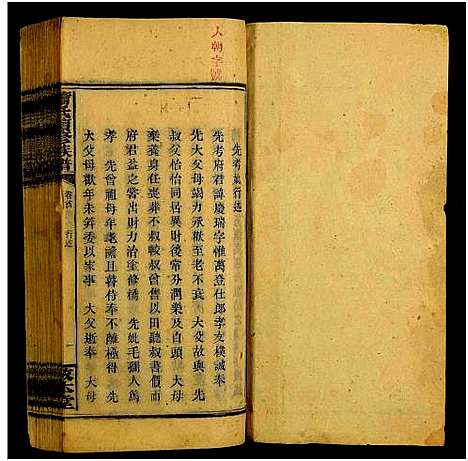 先考妣行述
先考府君諱慶瑞字惟萬登仕郎孝友樸誠奉
先大父母竭力承歡至老不衰　大父故與　先
叔父怡怡同居異財後常分潤樂及自頭　大母
樂養身任喪葬不叔較叔曾售以田聽叔書價而
府君益之嘗出財力治塗修橋　先妣毛孺人篤
孝　先曾祖母年耄譫且瞽侍奉不離極得
大父母歡年未笄委以家事　大父逝奉　大母
卷首
行述
一